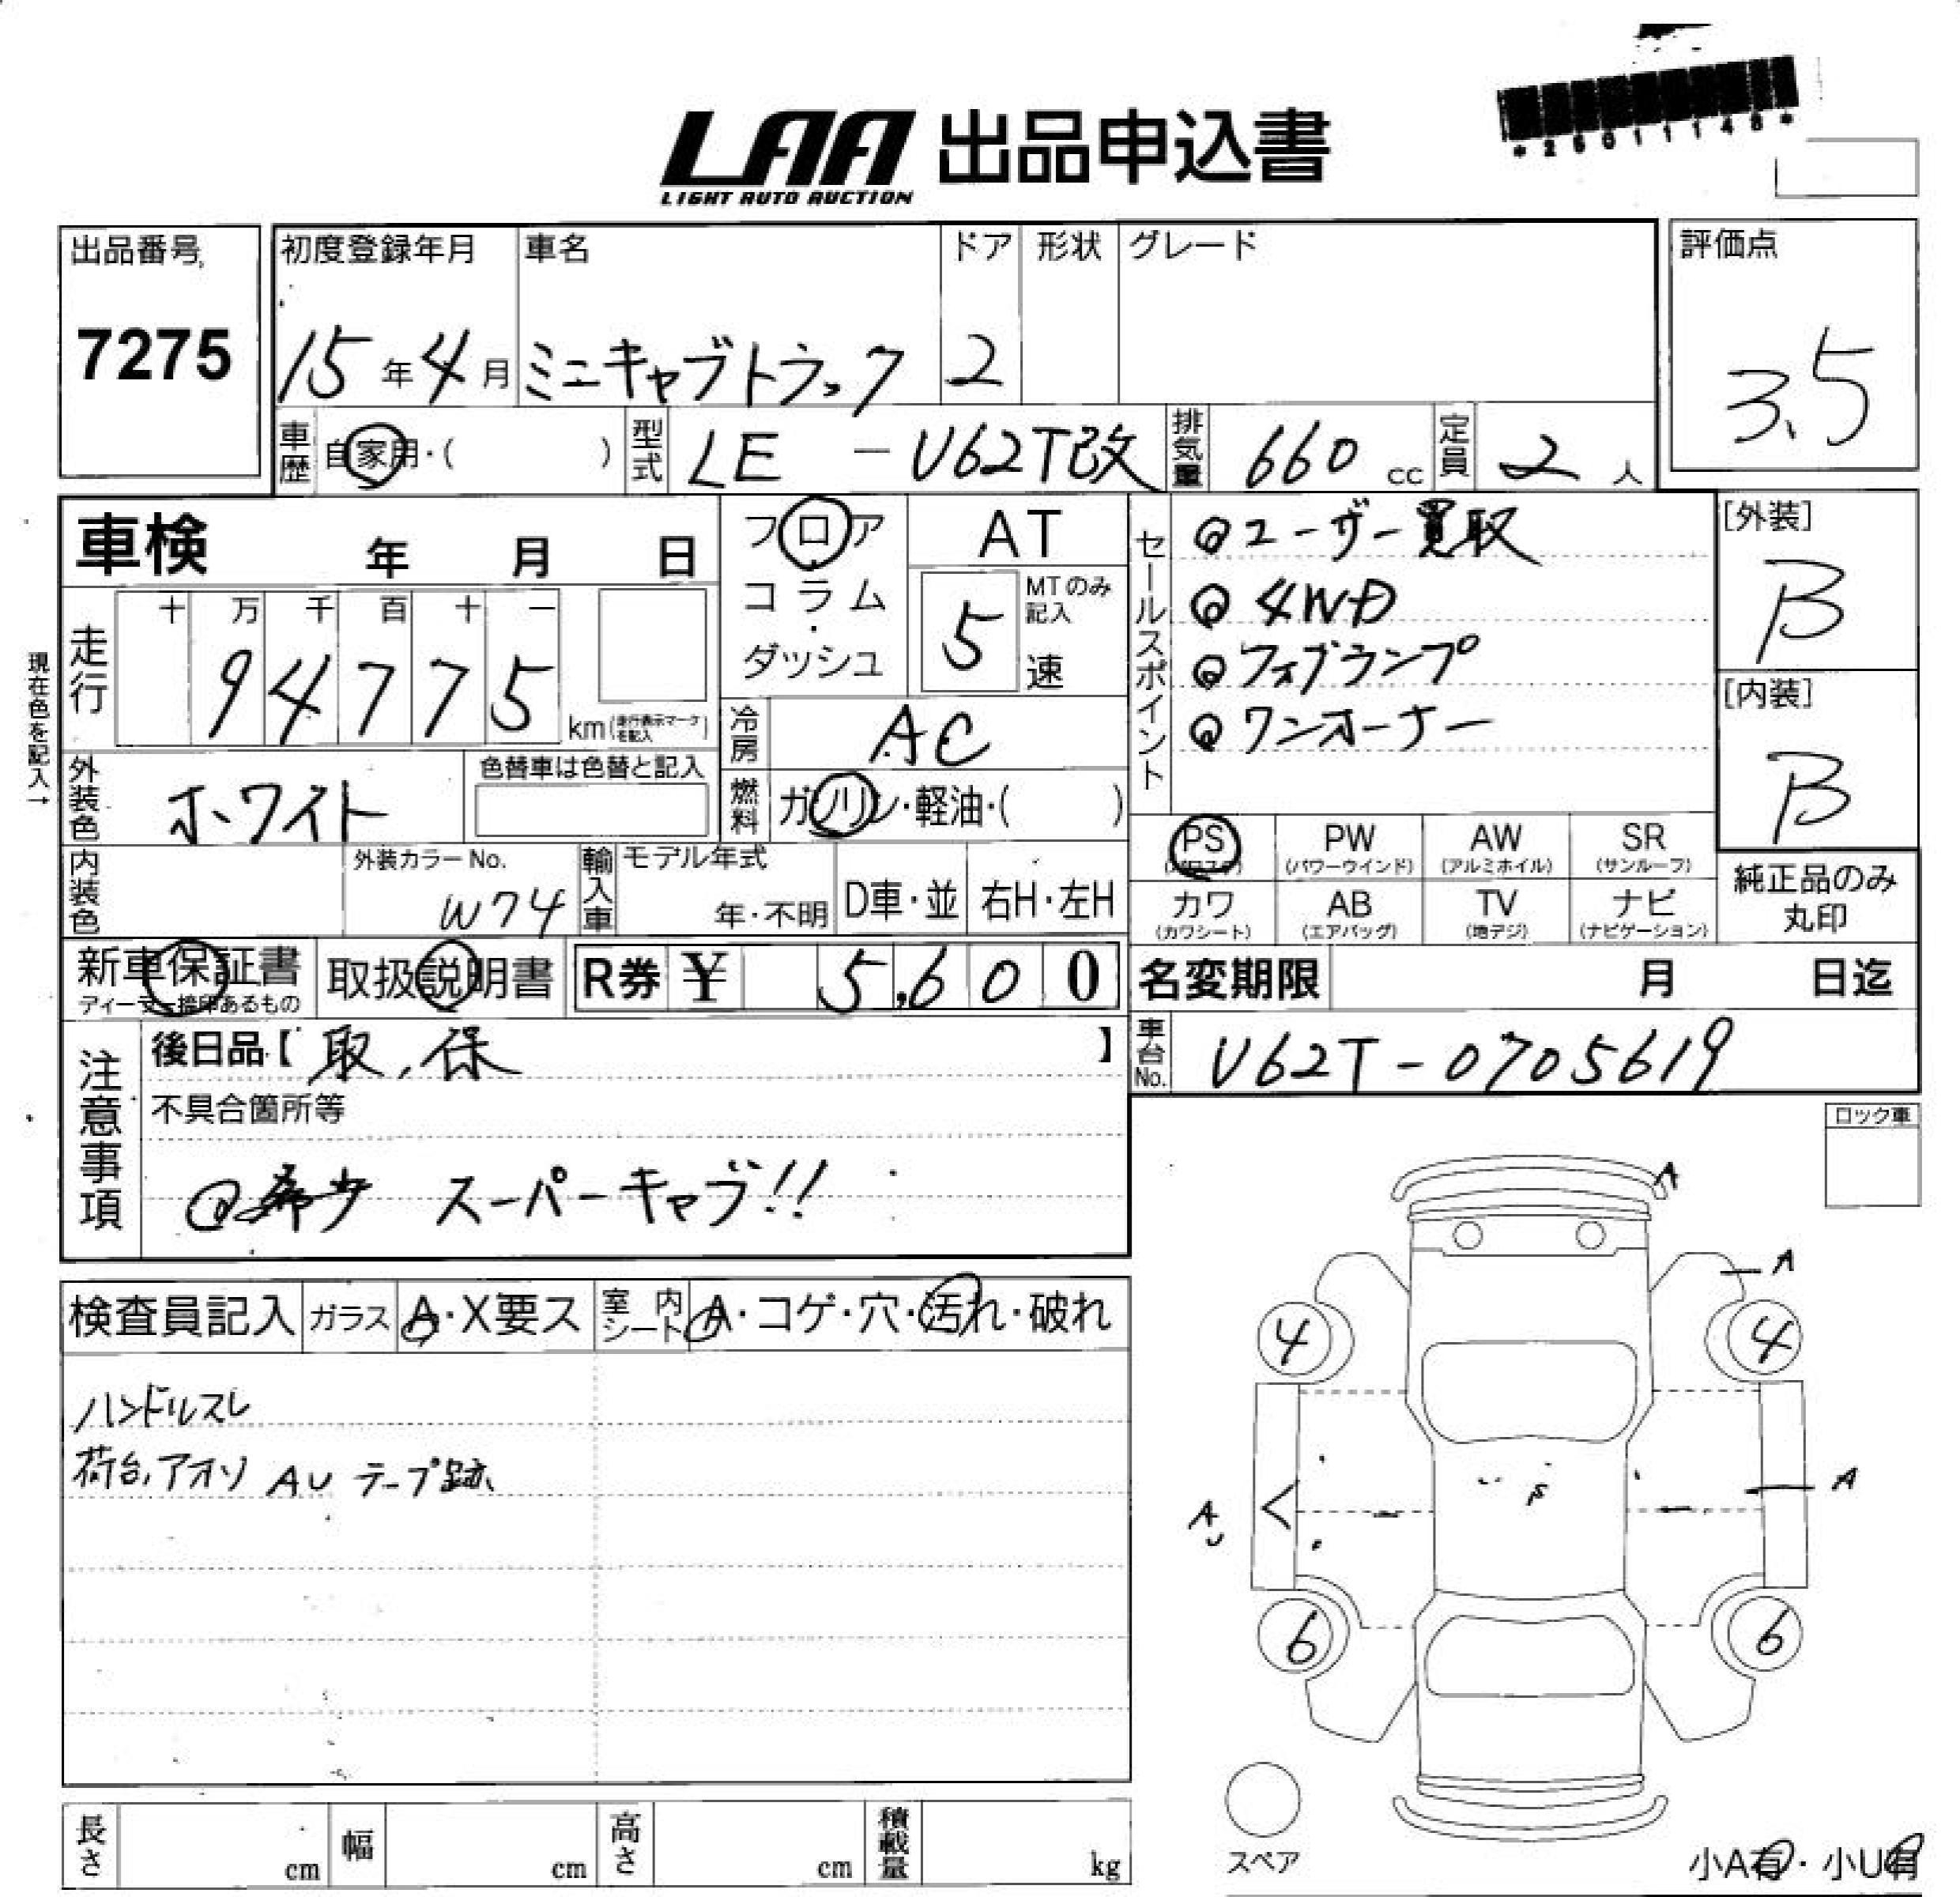 *25011148*
LAA 出品申込書
LIGHT AUTO AUCTION
出品番号 初度登録年月 車名 ドア 形状 グレード 評価点
7275 15年4月 ミニキャブトラック 2 3.5
車歴 自家用・( ) 型式 LE - U62T改 排気量 660 cc 定員 2 人
車検 年 月 日
フロア・コラム・ダッシュ
AT
5 速 MTのみ記入
セールスポイント
@ユーザー買取
@4WD
@フォグランプ
@ワンオーナー
[外装]
B
[内装]
B
現在色を記入→
走行 十 万 千 百 十 一
94775 km (走行表示マークを記入)
冷房 AC
外装色 ホワイト 色替車は色替と記入
燃料 ガソリン・軽油・( )
内装色 外装カラーNo. W74 輸入車 モデル年式 年・不明 D車・並 右H・左H
PS (パワステ) PW (パワーウインド) AW (アルミホイル) SR (サンルーフ)
カワ (カワシート) AB (エアバッグ) TV (地デジ) ナビ (ナビゲーション)
純正品のみ丸印
新車保証書 ディーラー捺印あるもの 取扱説明書 R券 ¥ 5,600
名変期限 月 日迄
車台No. U62T-0705619
注意事項
後日品【 取、保 】
不具合箇所等
@希少 スーパーキャブ!!
ロック車
検査員記入 ガラス A・X要ス 室内シート A・コゲ・穴・汚れ・破れ
ハンドルスレ
荷台,アオリ AU テープ跡
A
A
4 4
A
AU
6 6
スペア
小A有・小U有
長さ cm 幅 cm 高さ cm 積載量 kg